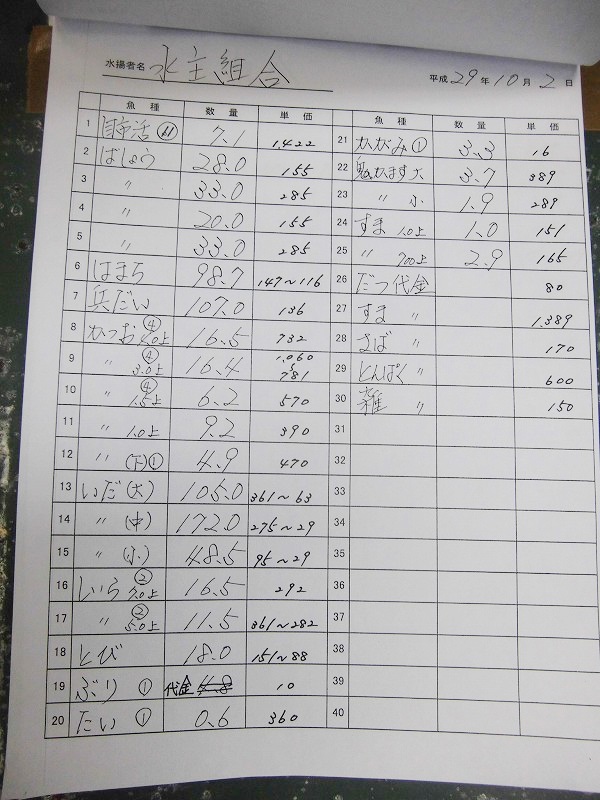 水揚者名 水主組合
平成 29 年 10 月 2 日
魚種 数量 単価
1 活 ⑪ 7.1 1,422
2 ばしょう 28.0 155
3 〃 33.0 285
4 〃 20.0 155
5 〃 33.0 285
6 はまち 98.7 147~116
7 兵だい 107.0 136
8 かつお ④ 4.0上 16.5 732
9 〃 ④ 3.0上 16.4 1,060~781
10 〃 ④ 1.5上 6.2 570
11 〃 1.0上 9.2 390
12 〃 (下)① 4.9 470
13 いだ(大) 105.0 361~63
14 〃 (中) 172.0 275~29
15 〃 (小) 48.5 95~29
16 しいら ② 7.0上 16.5 292
17 〃 ② 5.0上 11.5 361~282
18 とび 18.0 151~88
19 ぶり ① 代金 4.8 10
20 たい ① 0.6 360
魚種 数量 単価
21 かがみ ① 3.3 16
22 かます大 3.7 389
23 〃 小 1.9 289
24 すま 1.0上 1.0 151
25 〃 700上 2.9 165
26 だつ代金 80
27 すま 〃 1,389
28 さば 〃 170
29 とんぱく 〃 600
30 雑 〃 150
31
32
33
34
35
36
37
38
39
40